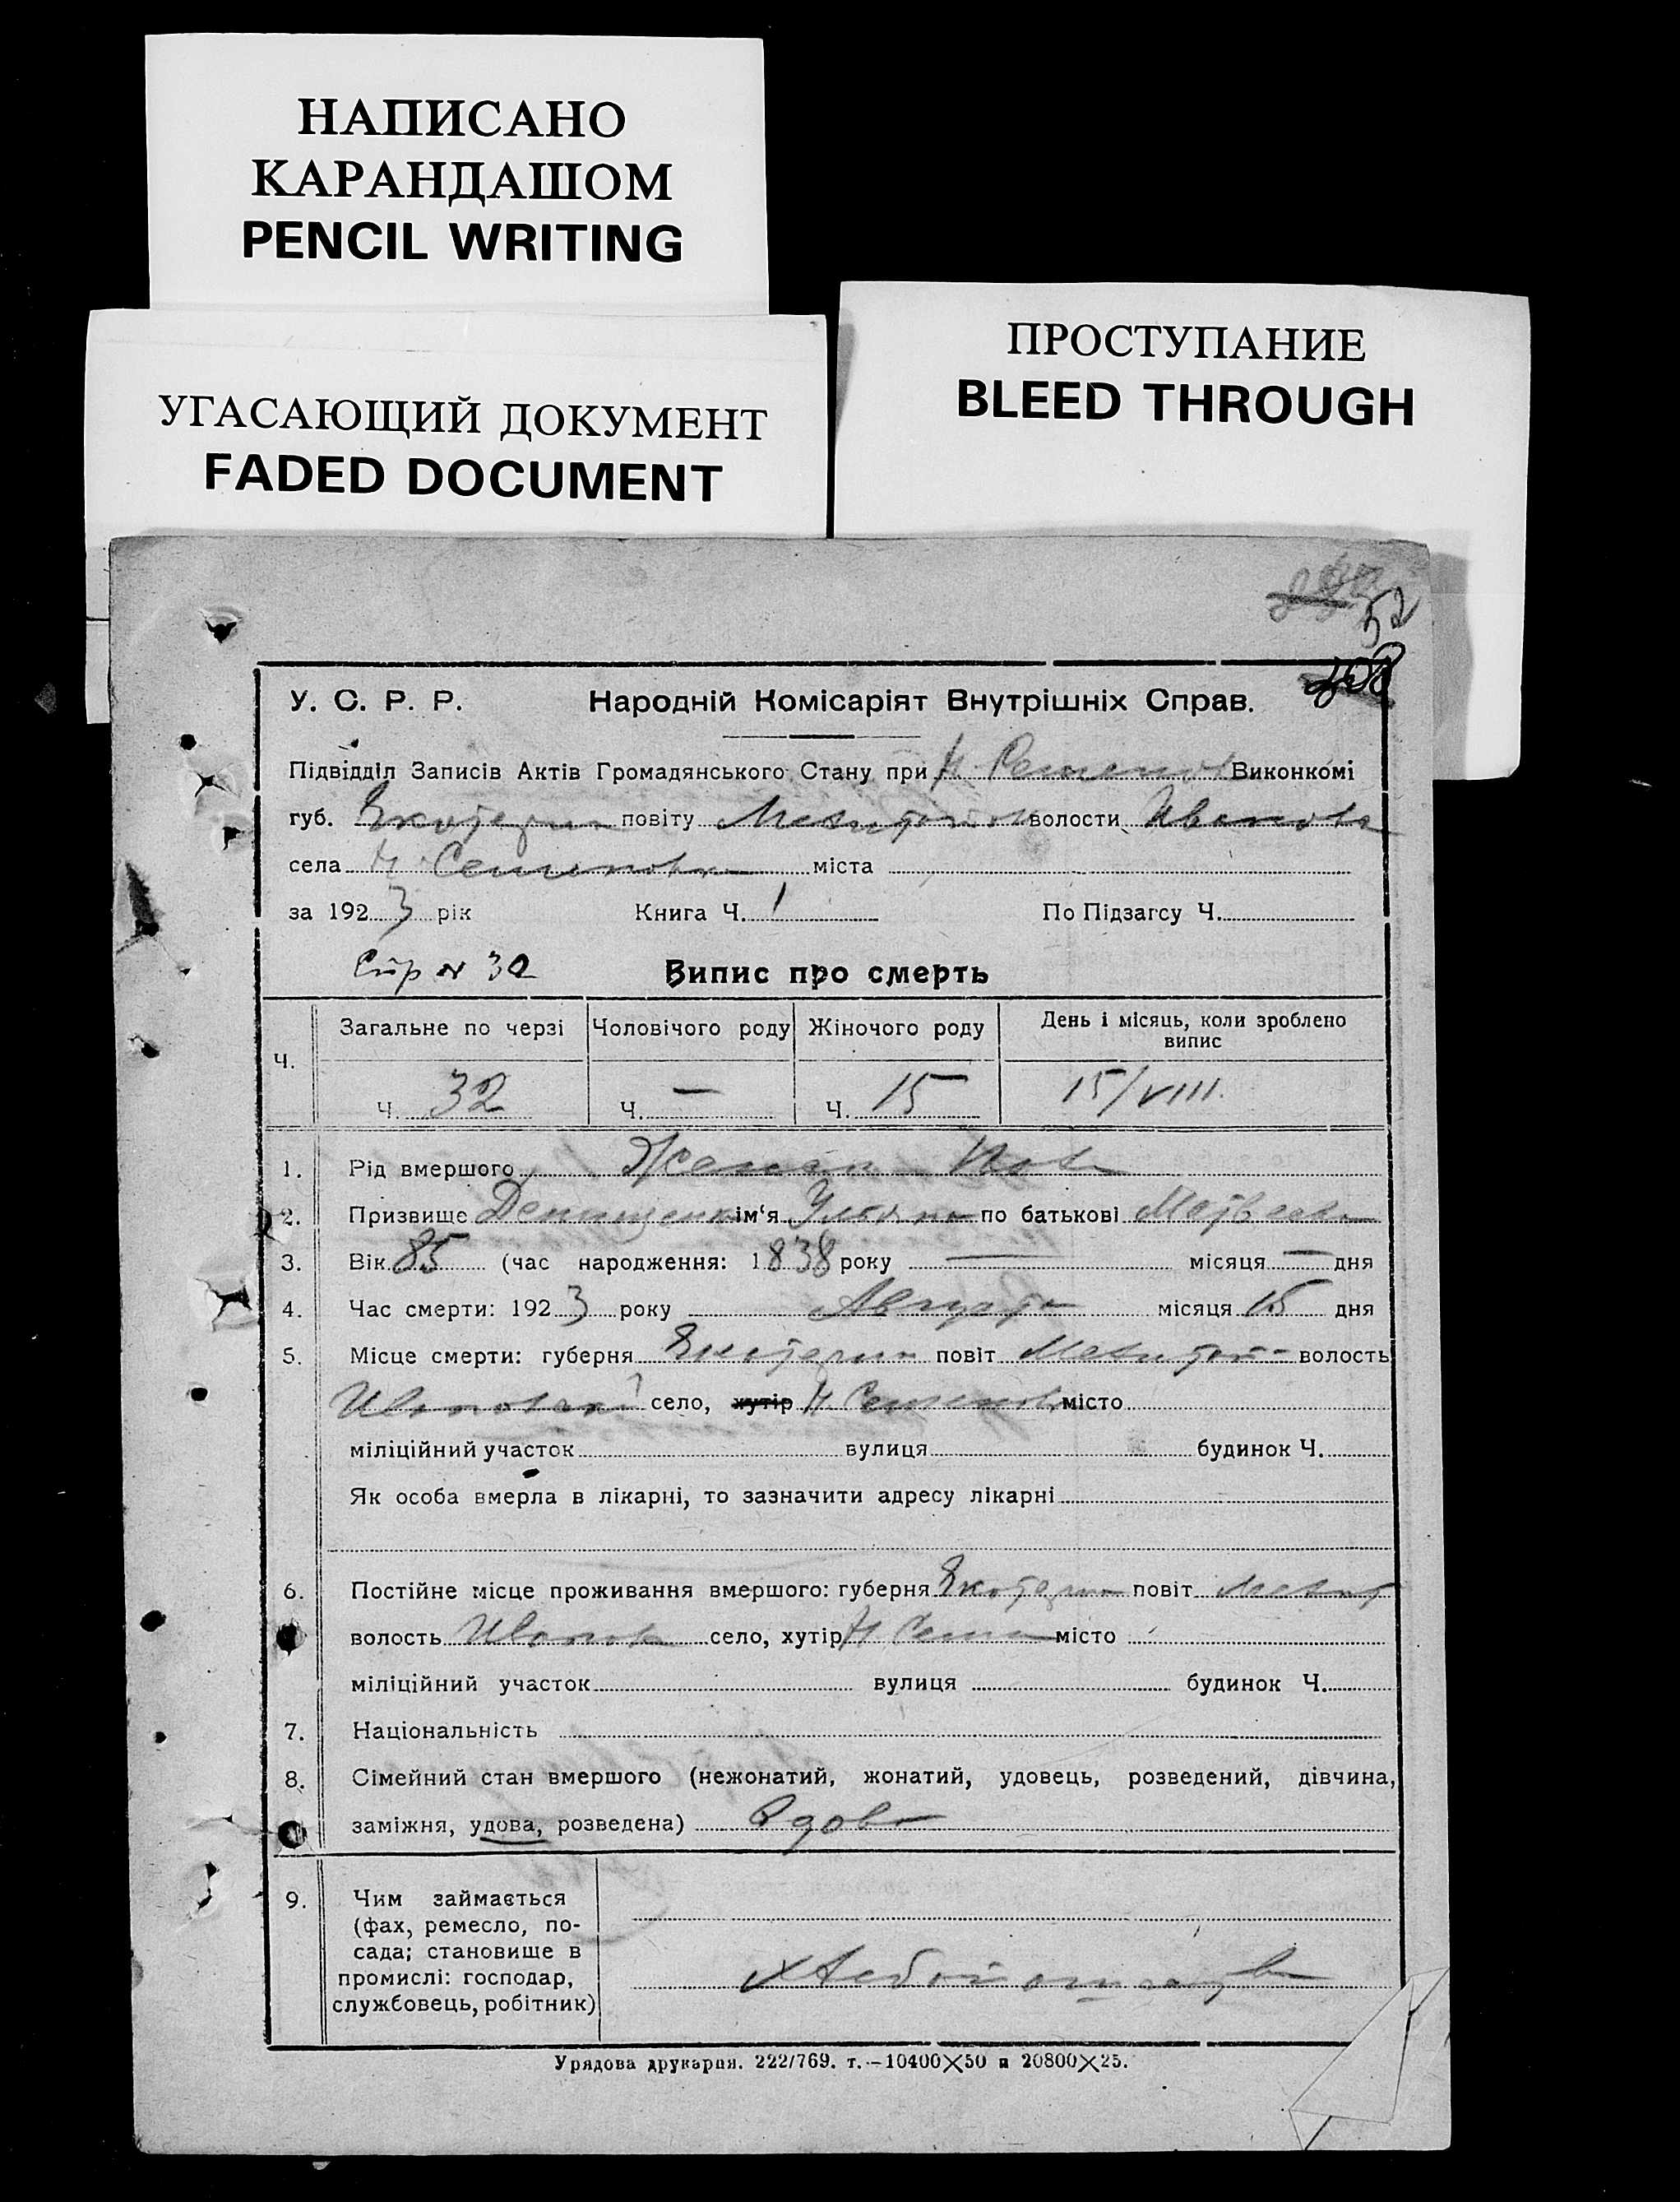 НАПИСАНО
КАРАНДАШОМ
PENCIL WRITING
УГАСАЮЩИЙ ДОКУМЕНТ
FADED DOCUMENT
ПРОСТУПАНИЕ
BLEED THROUGH
52
У. С. Р. Р. Народній Комісаріят Внутрішніх Справ.
Підвідділ Записів Актів Громадянського Стану при Н. Семенов Виконкомі
губ. Екатерин повіту Мелитопол волости Иванов
села Н Семеновка міста
за 1923 рік Книга Ч. 1 По Підзагсу Ч.
Стр N 32
Випис про смерть
Ч. Загальне по черзі Чоловічого роду Жіночого роду День і місяць, коли зроблено випис
Ч. 32 Ч. — Ч. 15 15/VIII.
1. Рід вмершого Женский Пол
2. Призвище Денищенко ім'я Ульяна по батькові Матвеевна
3. Вік 85 (час народження: 1838 року — місяця — дня
4. Час смерти: 1923 року Августа місяця 15 дня
5. Місце смерти: губерня Екатерин повіт Мелитоп волость
Ивановской село, хутір Н Семеновка місто
міліційний участок вулиця будинок Ч.
Як особа вмерла в лікарні, то зазначити адресу лікарні
6. Постійне місце проживання вмершого: губерня Екатерин повіт Мелит
волость Иванов село, хутір Н Семен місто
міліційний участок вулиця будинок Ч.
7. Національність
8. Сімейний стан вмершого (нежонатий, жонатий, удовець, розведений, дівчина,
заміжня, удова, розведена) Вдова
9. Чим займається
(фах, ремесло, по-
сада; становище в
промислі: господар,
службовець, робітник)
Хлебопашество
Урядова друкарня. 222/769. т.—10400×50 и 20800×25.